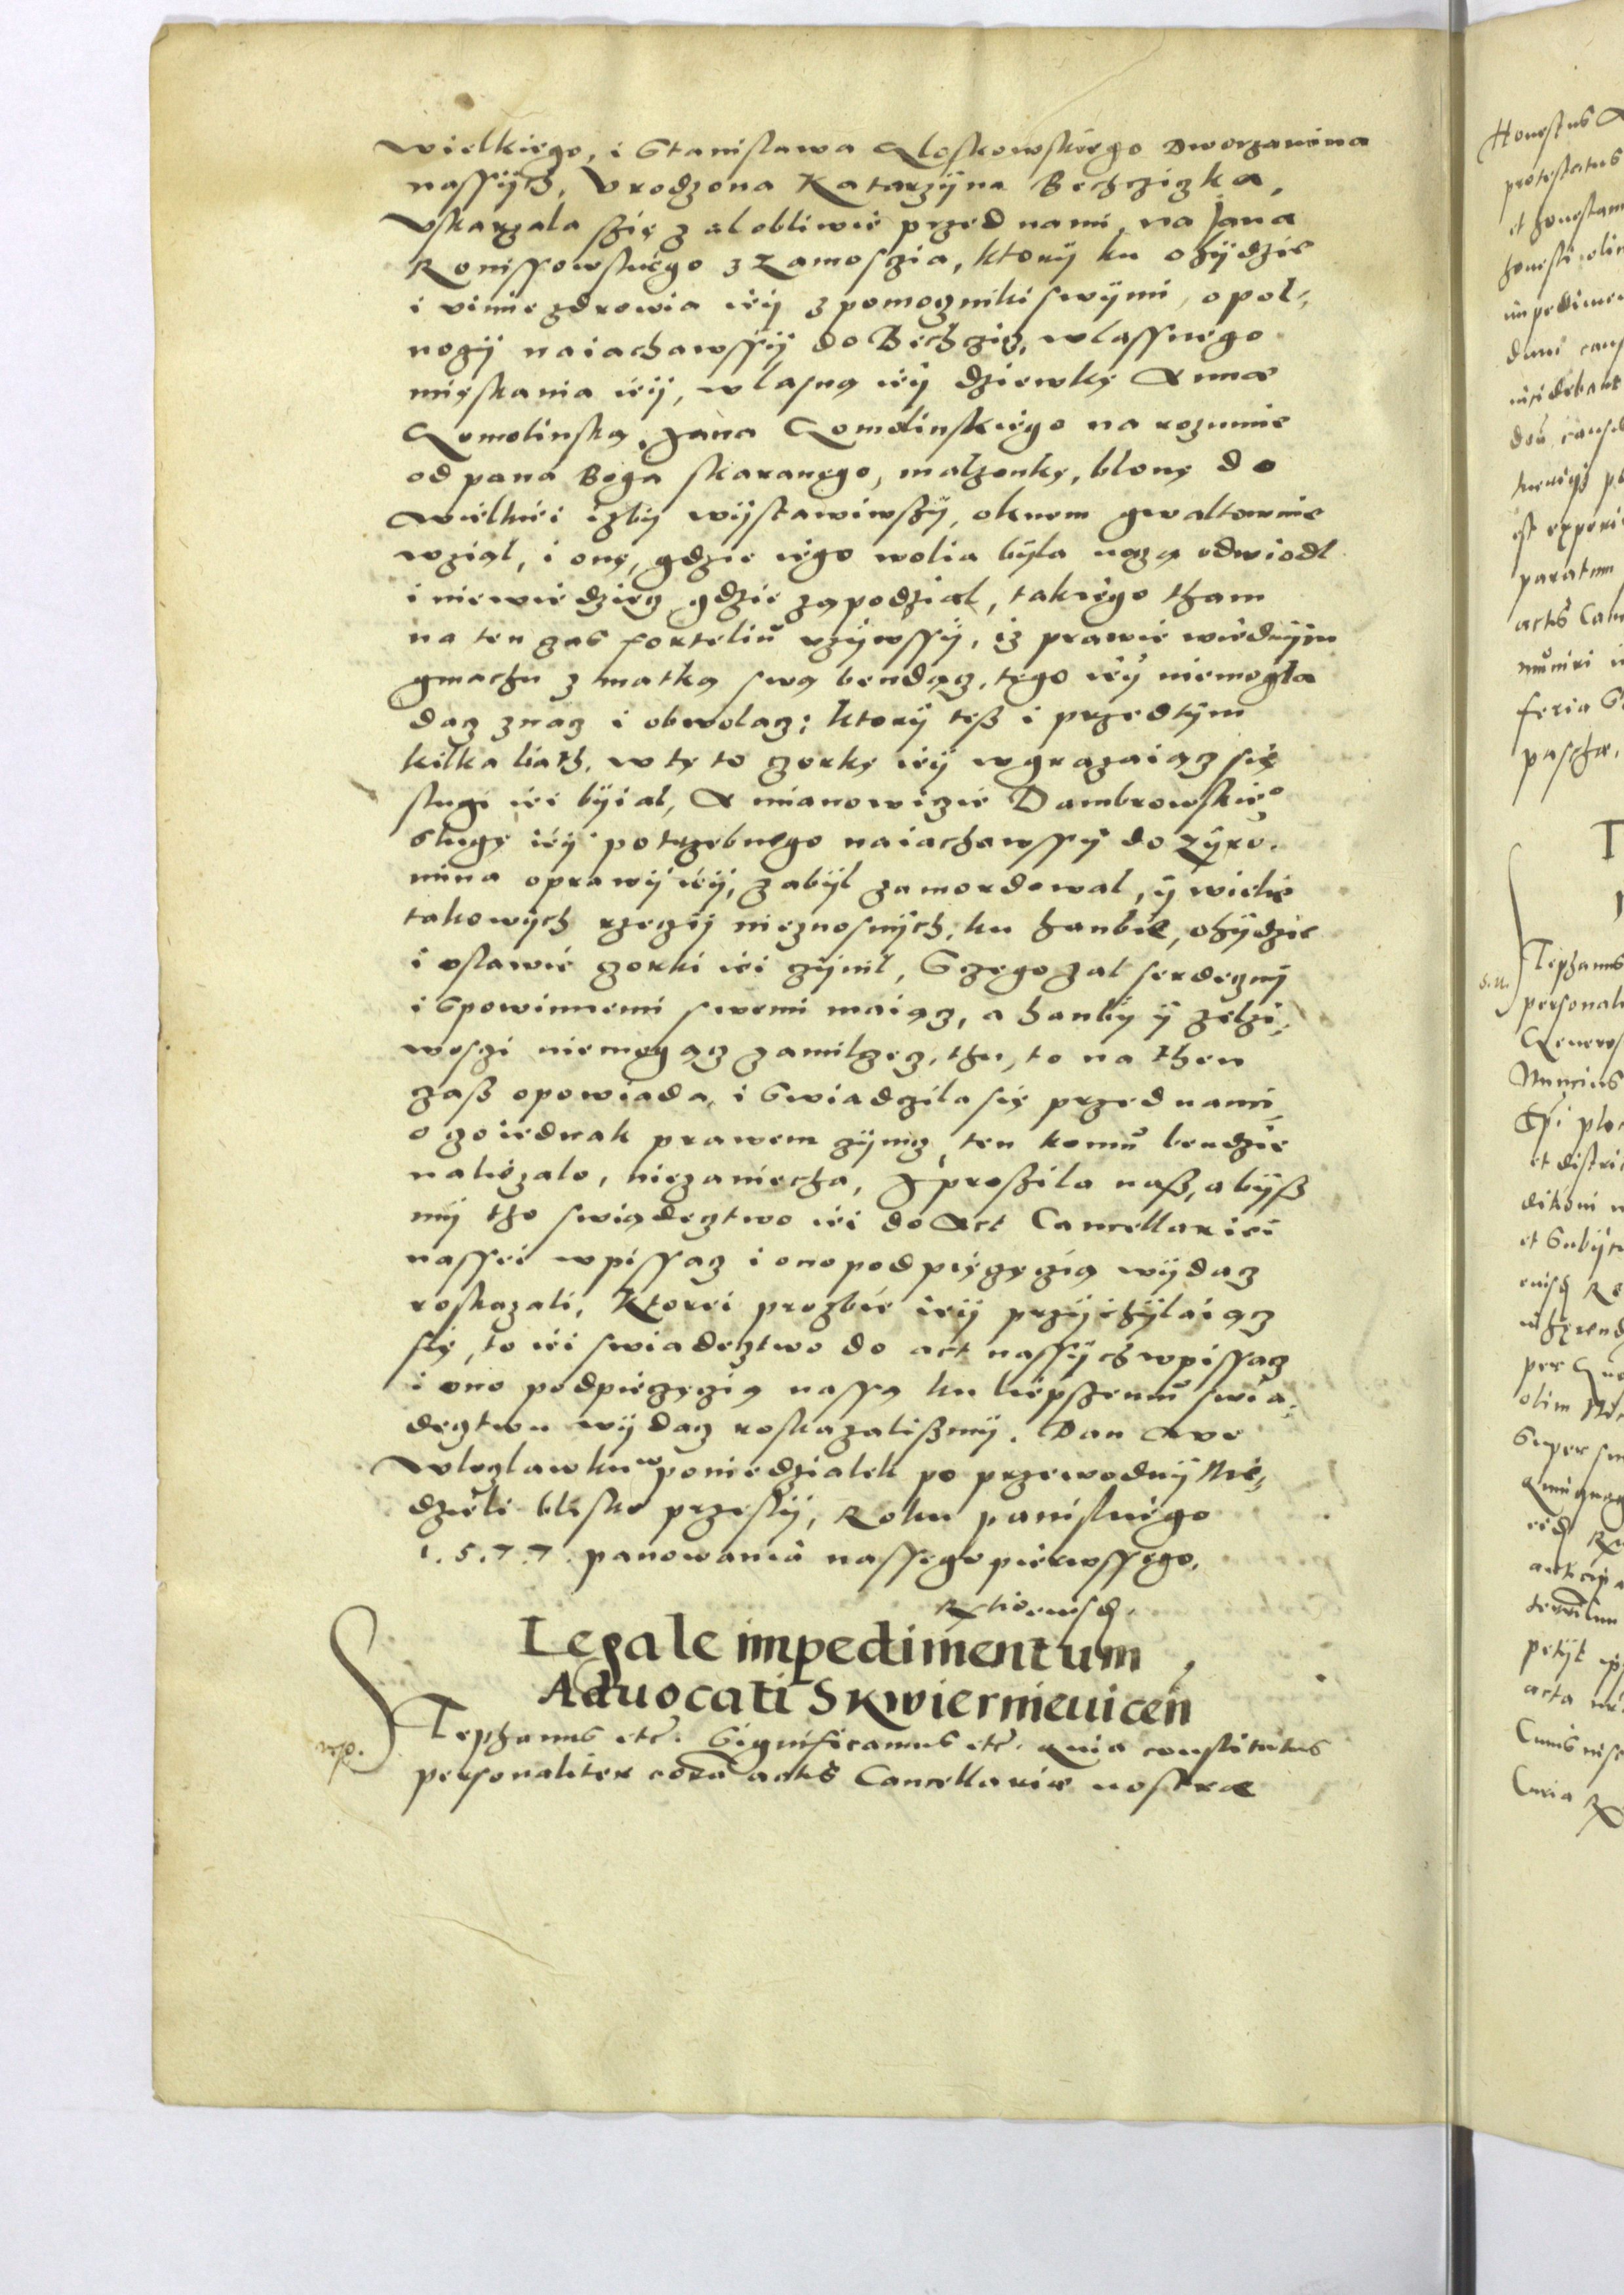 wielkiego, i Stanislawa Kloskowskiego Dworzanina
nassÿch, Vrodzona Katarzÿna Bechcziczka,
Vskarzala szię zalobliwie przed nami, na Jana
Konissowskiego z Zamoszia, ktorÿ ku ohÿdzie
i vimie zdrowia ieÿ z pomocznikiswÿmi, o pol-
noczÿ naiachawssÿ do Bechczicz, wlassnego
mięskania ieÿ, wlasną ieÿ dziewkę Annæ
Komolinską, Jana Komolinskiego na rozumie
od pana Boga skaranego, malzonkę, blonę do
wielkiei izbÿ wÿstawiwszÿ, oknem gwaltownie
wziąl, i onę, gdzie iego wolia bÿla uczą odwiodl
i niewiedziecz gdzie zapodzial, takiego tham
na ten czas forteliu vzÿwssÿ, iz prawie wiednÿm
gmachu z matką swą bendącz, tego ieÿ niemogla
dacz znacz i obwolacz: ktorÿ tesz i przedtÿm
kilka liath, w tę to czorkę ieÿ wgrazaiącz się
slugi iei bÿial, A mianowiczie Dambrowskieo
slugę ieÿ potrzebnego naiachawssÿ do Zÿro-
mina oprawÿ ieÿ, zabÿl zamordowal, ÿ wielie
takowÿch rzeczÿ nieznosnÿch, ku hanbie, ohÿdzie
i oslawie czorki iei czÿnil, Sczego zal serdecznÿ
i spowinnemi swemi maiącz, a hanbÿ ÿ zelzi-
woszi niemogącz zamilczecz, thu, to na then
czasz opowiada, i Swiadczila się przed nami
o czo iednak prawem czÿnicz, ten komu bendzie
naliezalo, niezaniecha, J prosila nasz, abÿsz
mÿ tho swiadecztwo iei do Act Cancellariei
nassei wpissacz i ono pod pięczęczią wÿdacz
roskazali, Ktorei prozbie ieÿ przÿchÿlaiącz
się, to iei swiadecztwo do act nassÿch wpissacz
i ono podpieczęczią nassą ku liepszemu swia-
decztwu wÿdacz roskazaliszmÿ. Dan Awe
Wloczlawku w poniedzialek po przewodnÿ Nie-
dzieli blisko przeslÿ, Roku paniskiego
1.5.7.7. panowania nassego pierwssego.
Legale impedimentum
Aduocati Skwierniewicen
Stephanus etc. Significamus etc. quia constitutus
personaliter cora actis Cancellariæ nostræ
Honestus
protestatus
paratum
feria
pascha,
Stephanus
S.N.
et distri
olim
acta